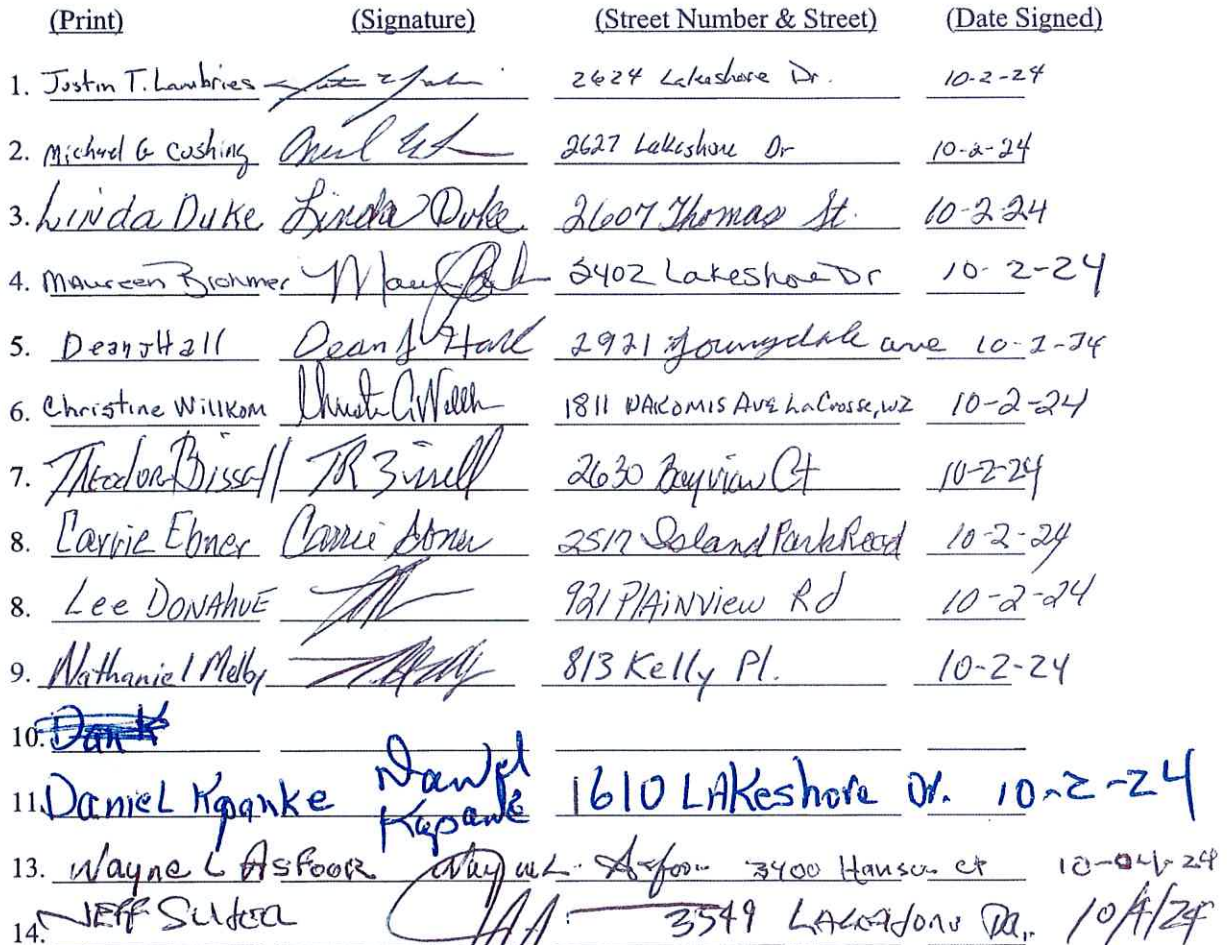 (Print) (Signature) (Street Number & Street) (Date Signed)
1. Justin T. Lambries 2624 Lakeshore Dr. 10-2-24
2. Michael G Cushing 2627 Lakeshore Dr 10-2-24
3. Linda Duke Linda Duke 2607 Thomas St. 10-2-24
4. Maureen Brohmer 2402 Lakeshore Dr 10-2-24
5. Dean J Hall Dean J Hall 2921 Youngdale ave 10-2-24
6. Christine Willkom 1811 NAKOMIS AVE LaCrosse, WI 10-2-24
7. Theodore Bissell TR Bissell 2630 Bayview Ct 10-2-24
8. Carrie Ebner Carrie Ebner 2517 Island Park Road 10-2-24
8. Lee DONAHUE 921 PlAiNView Rd 10-2-24
9. Nathaniel Melby 813 Kelly Pl. 10-2-24
10. Dan K
11. Daniel Kapanke Daniel Kapanke 1610 LAKeshore Dr. 10-2-24
13. Wayne L Asfoor Wayne L. Asfoor 3400 Hanson ct 10-04-24
14. JEFF 3549 10/4/24